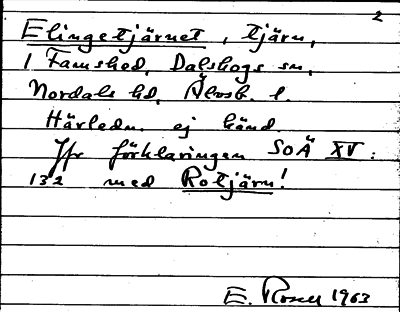 2
Elingetjärnet, tjärn,
i Famshed, Dalskogs sn,
Nordals hd, Älvsb. l.
Härledn. ej känd.
Jfr förklaringen SOÄ XV:
132 med Rotjärn!
E. Rosell 1963